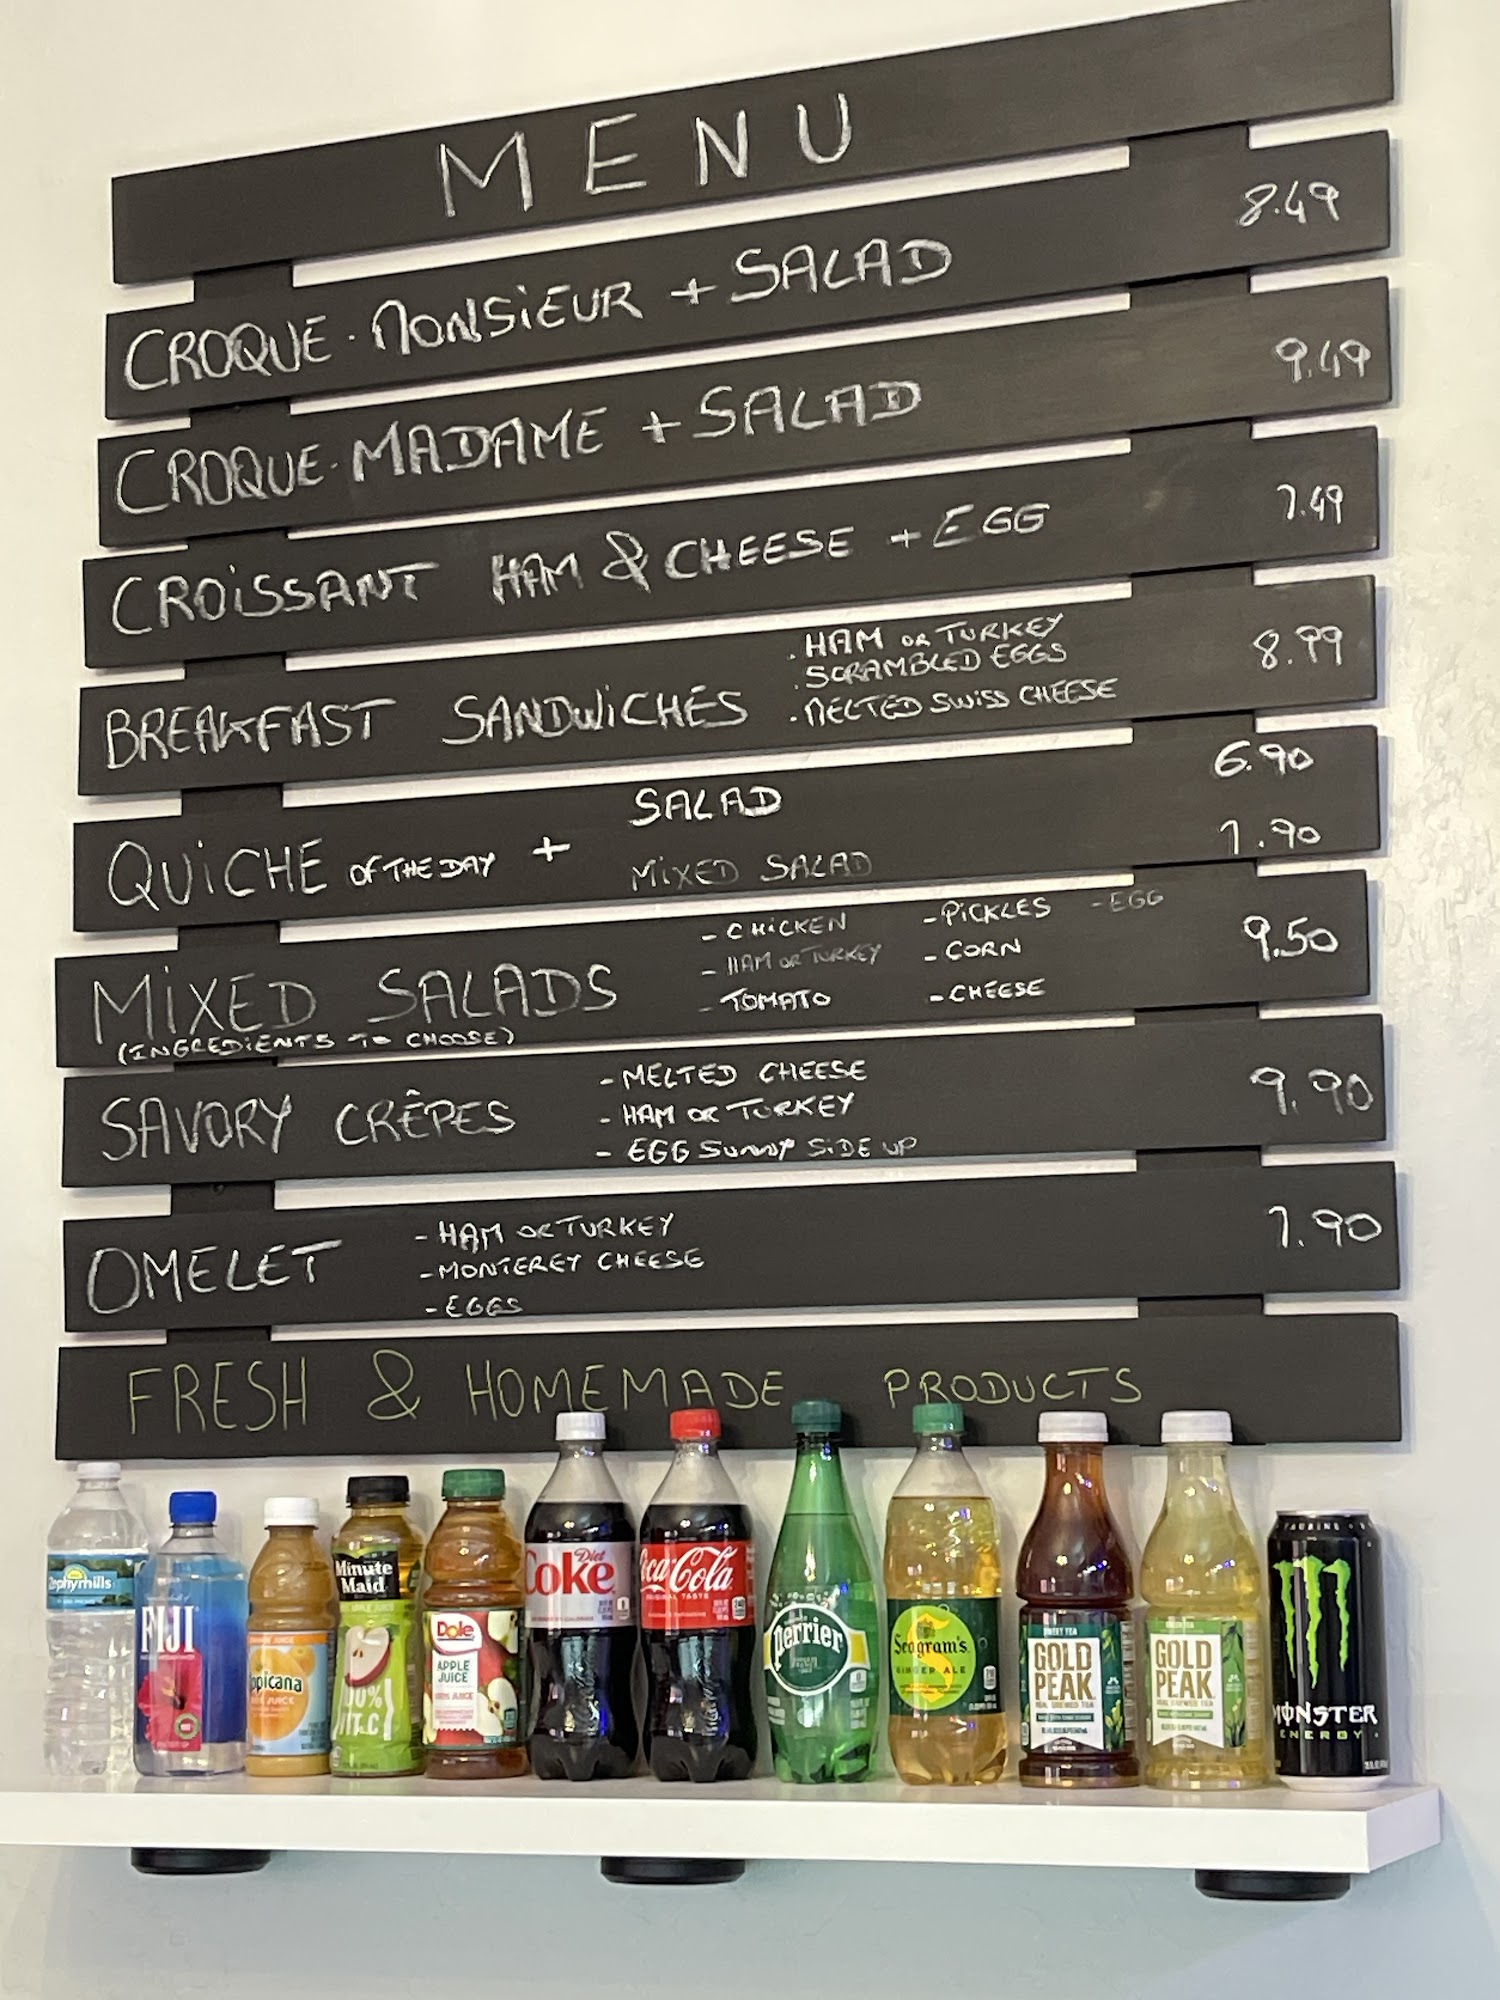 MENU
CROQUE·MONSiEUR + SALAD 8.49
CROQUE·MADAME + SALAD 9.49
CROiSSANT HAM & CHEESE + EGG 7.49
BREAKFAST SANDWiCHES 8.99
. HAM OR TURKEY
. SCRAMBLED EGGS
. MELTED SWISS CHEESE
QUiCHE OF THE DAY +
SALAD 6.90
MiXED SALAD 7.90
MiXED SALADS 9.50
(INGREDIENTS TO CHOOSE)
- CHiCKEN
- HAM OR TURKEY
- TOMATO
- PiCKLES
- CORN
- CHEESE
- EGG
SAVORY CRÊPES 9.90
- MELTED CHEESE
- HAM OR TURKEY
- EGG SUNNY SiDE UP
OMELET 7.90
- HAM OR TURKEY
- MONTEREY CHEESE
- EGGS
FRESH & HOMEMADE PRODUCTS
Zephyrhills
FIJI
Minute
Maid
100%
VIT.C
Dole
APPLE
JUICE
100% JUICE
Diet
Coke
Coca-Cola
ORIGINAL TASTE
perrier
Seagram's
GINGER ALE
SWEET TEA
GOLD
PEAK
REAL BREWED TEA
GREEN TEA
GOLD
PEAK
REAL BREWED TEA
TAURINE
MONSTER
ENERGY